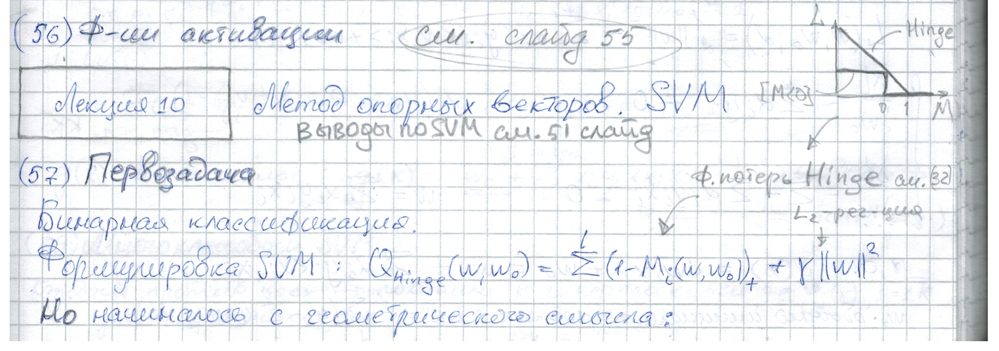 (56) Ф-ии активации см. слайд 55
L Hinge
[M<0] 0 1 M
Лекция 10 Метод опорных векторов. SVM
Выводы по SVM см. 51 слайд
(57) Первозадача
ф. потерь Hinge см. (32)
L₂-рег-ция
Бинарная классификация.
Формулировка SVM: Q_Hinge(w,w₀) = Σ^l (1-M_i(w,w₀))₊ + γ||w||²
Но начиналось с геометрического смысла: